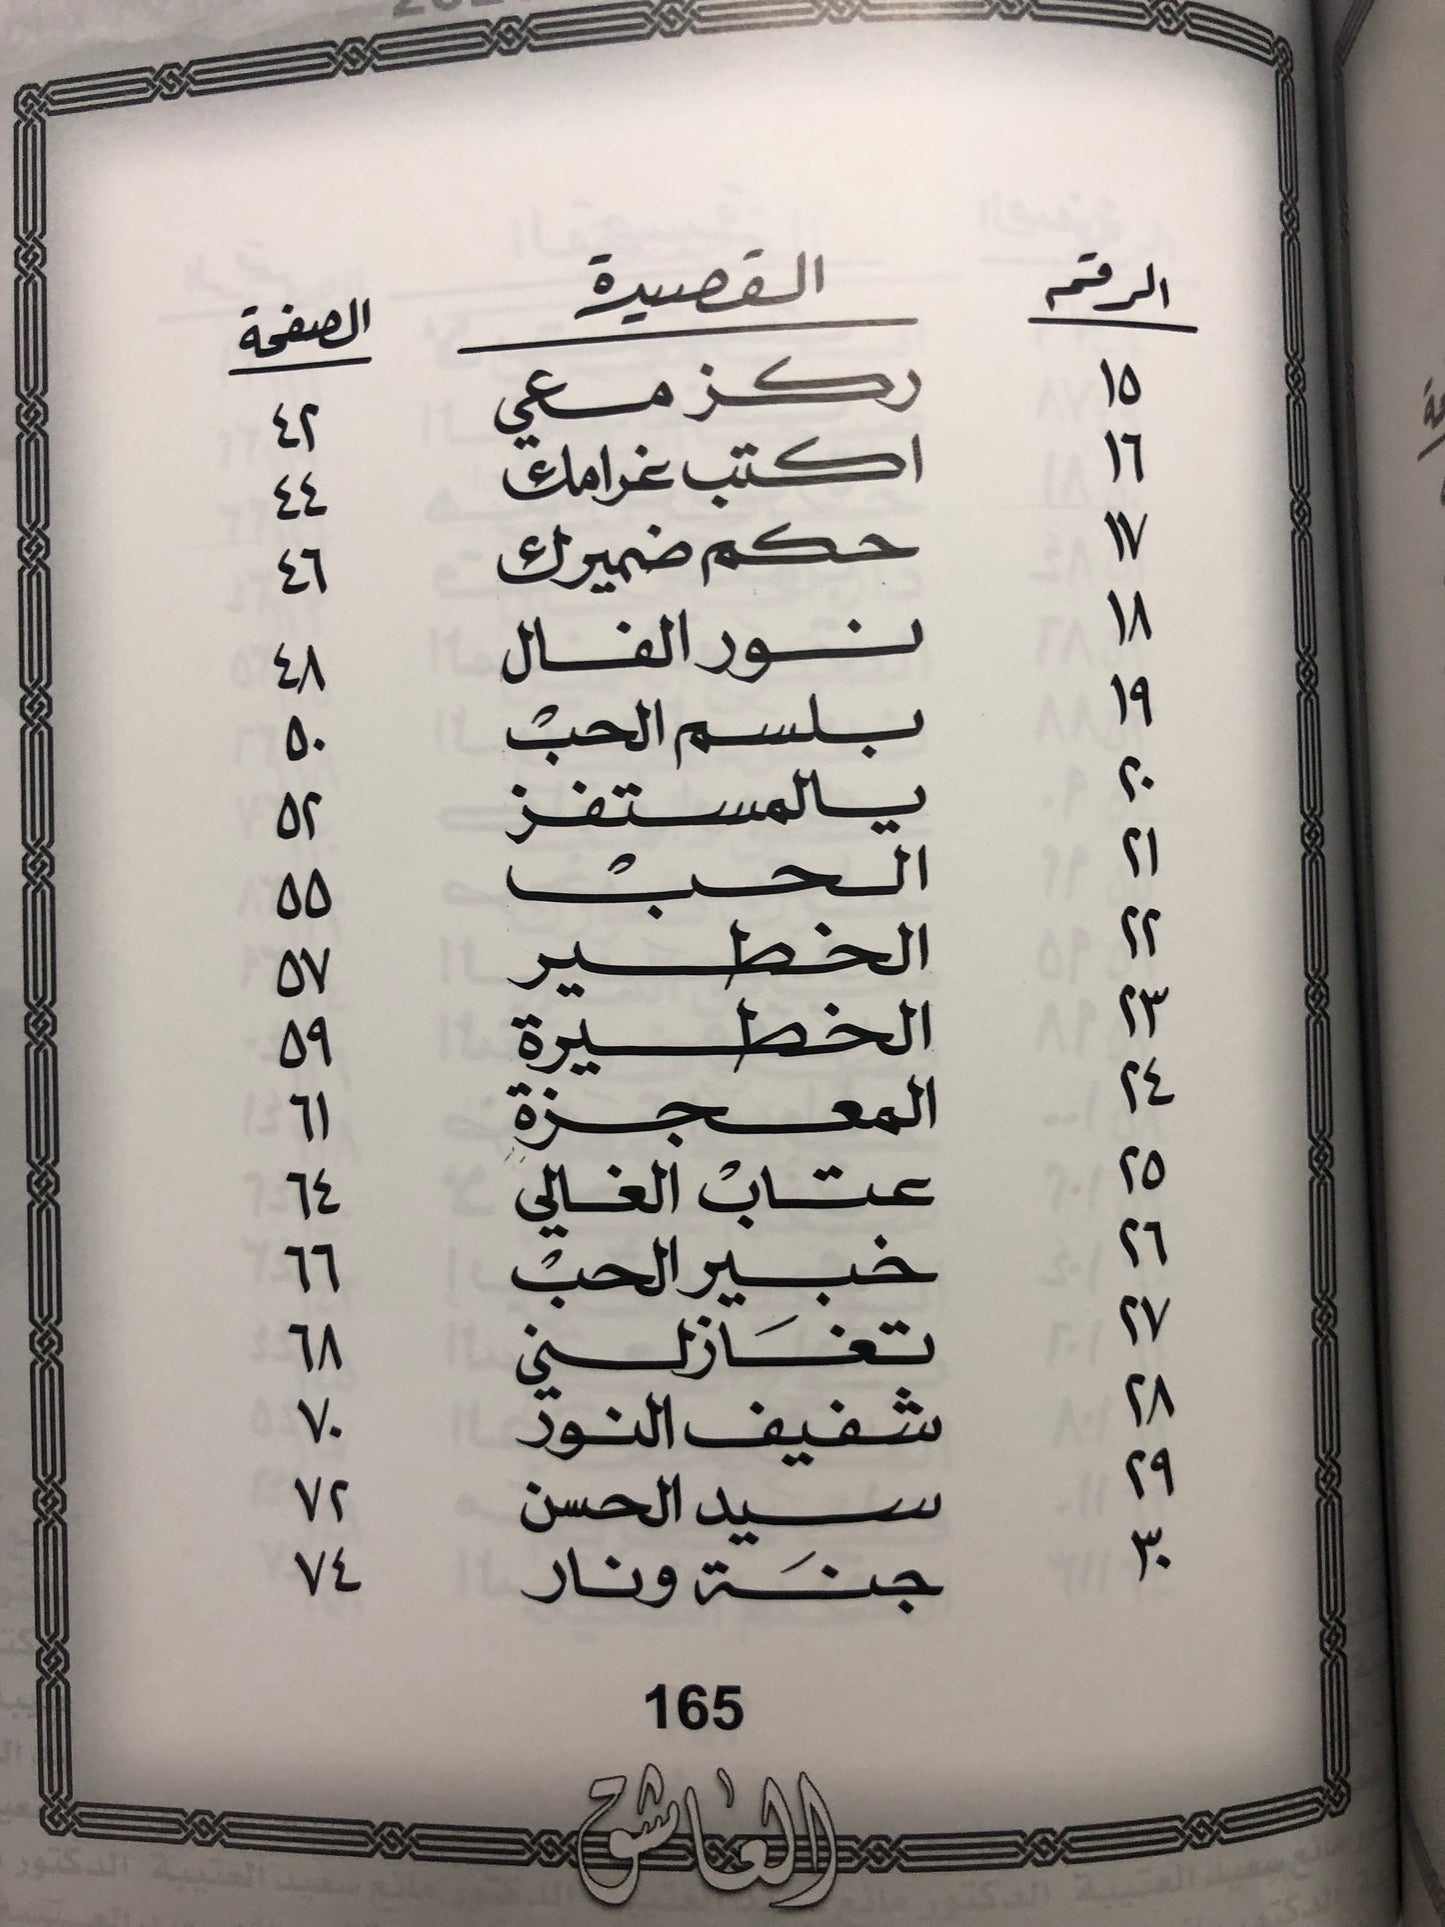 الرقم القصيدة الصفحة
١٥ ركز معي ٤٢
١٦ اكتب غرامك ٤٤
١٧ حكم ضميرك ٤٦
١٨ نور الفال ٤٨
١٩ بلسم الحبْ ٥٠
٢٠ يالمستفز ٥٢
٢١ الحبْ ٥٥
٢٢ الخطير ٥٧
٢٣ الخطيرة ٥٩
٢٤ المعجزة ٦١
٢٥ عتابْ الغالي ٦٤
٢٦ خبير الحبْ ٦٦
٢٧ تغَازلني ٦٨
٢٨ شفيف النور ٧٠
٢٩ سيد الحسن ٧٢
٣٠ جنَة ونار ٧٤
165
العاشق